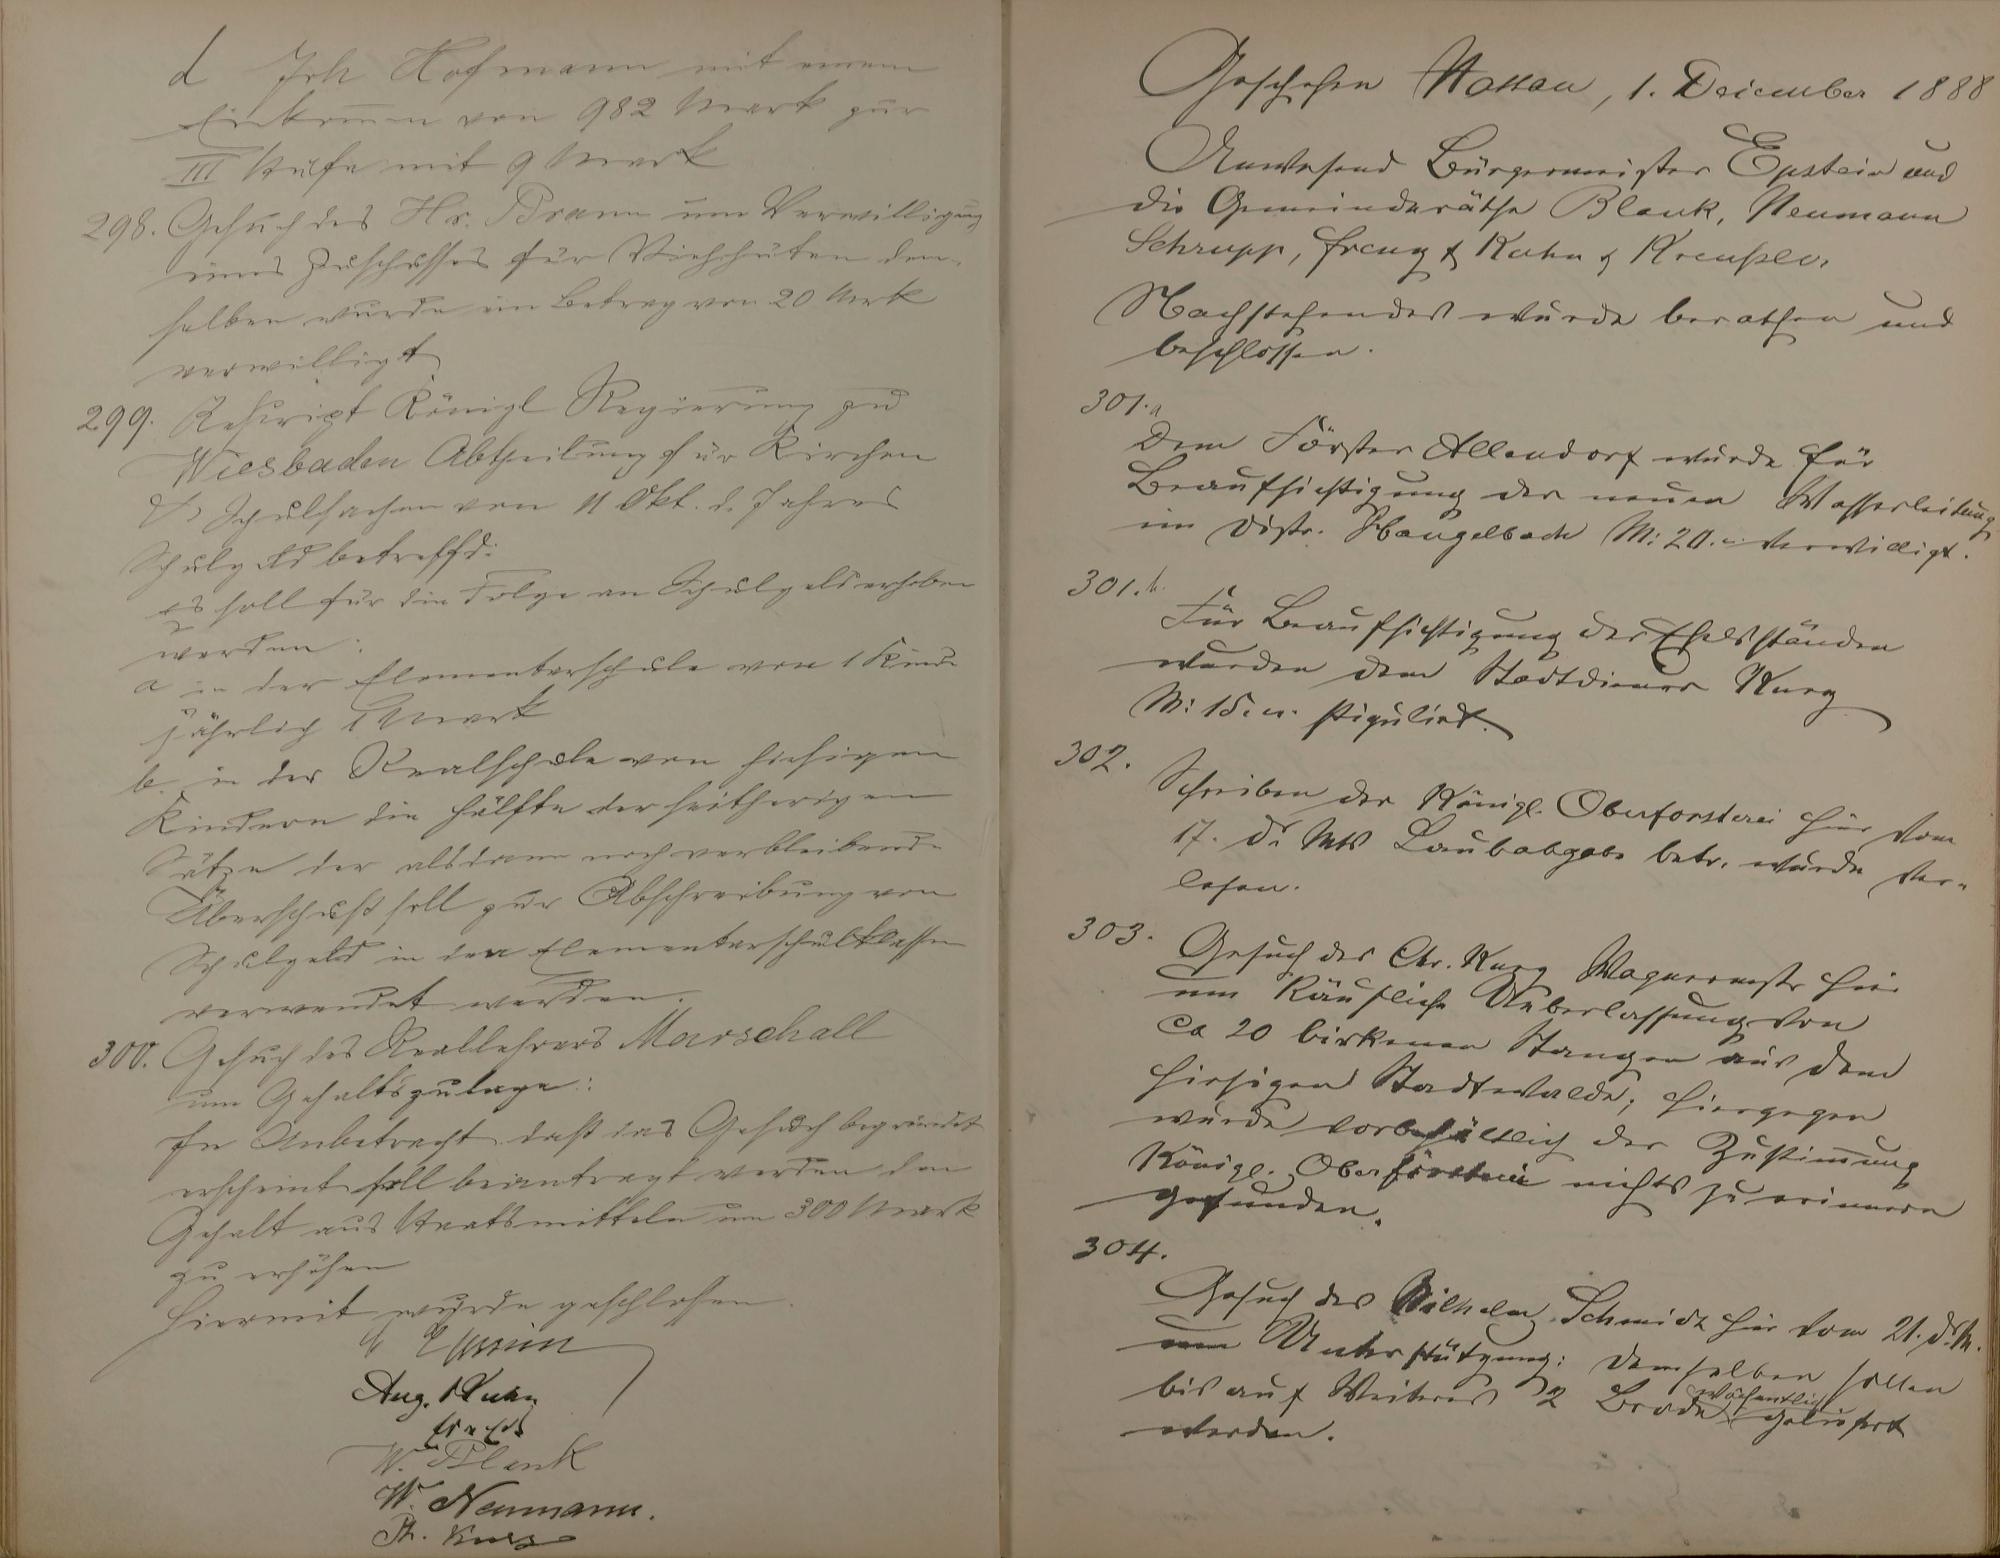 d Joh Hofmann mit einem
Einkom̅en von 982 Mark zur
III Stufe mit 9 Mark
298. Gesuch des Hr. Braun um Verwilligung
eines Zuschusses für Viehhüten dem-
selben wurde ein Betrag von 20 Mark
verwilligt
299. Rescript Königl Regierung zu
Wiesbaden Abtheilung für Kirchen
& Schulsachen von 11 Okt. d. Jahres
Schulgeld betreffd:
es soll für die Folge an Schulgeld erhoben
werden:
a in der Elementarschule von 1 Kinde
jährlich 1 Mark
b. in der Realschule von hiesigen
Kindern die Hälfte der seitherigen
Sätze der alsdann noch verbleibende
Überschuß soll zur Abschreibung von
Schulgeld in den Elementarschulklassen
verwendet werden.
300. Gesuch des Reallehrers Marschall
um Gehaltszulage:
In Anbetracht daß das Gesuch begründet
erscheint soll beantragt werden den
Gehalt aus Staatsmitteln um 300 Mark
zu erhöhen
Hiermit wurde geschlossen.
Epstein
Aug. Kuhn
W. Blank
W. Neumann.
Geschehen Nassau, 1. December 1888
Anwesend Bürgermeister Epstein und
die Gemeinderäthe Blank, Neumann
Schrupp, & Kuhn &
Nachstehendes wurde berathen und
beschlossen.
301.a
Dem Förster Allendorf wurde für
Beaufsichtigung der neuen Wasserleitung
im Distr. M: 20.- verwilligt.
301.b.
Für Beaufsichtigung der
wurden dem Stadtdiener Kurz
M: 15.-
302.
Schreiben der Königl. Oberforsterei hier vom
17. ds. Mts Laubabgabe betr. wurde ver-
lesen.
303.
Gesuch des Chr. Kurz Wagnermstr hier
um käufliche Ueberlassung von
ca 20 birkenen Stangen aus dem
hiesigen Stadtwalde; hiergegen
wurde vorbehältlich der Zustim̅ung
Königl. Oberförsterei nichts zu erinnern
gefunden.
304.
Gesuch des Wilhelm Schmidt hier vom 21. d. M.
um Unterstützung: demselben sollen
bis auf Weiteres 2 Brode wöchentlich geliefert
werden.